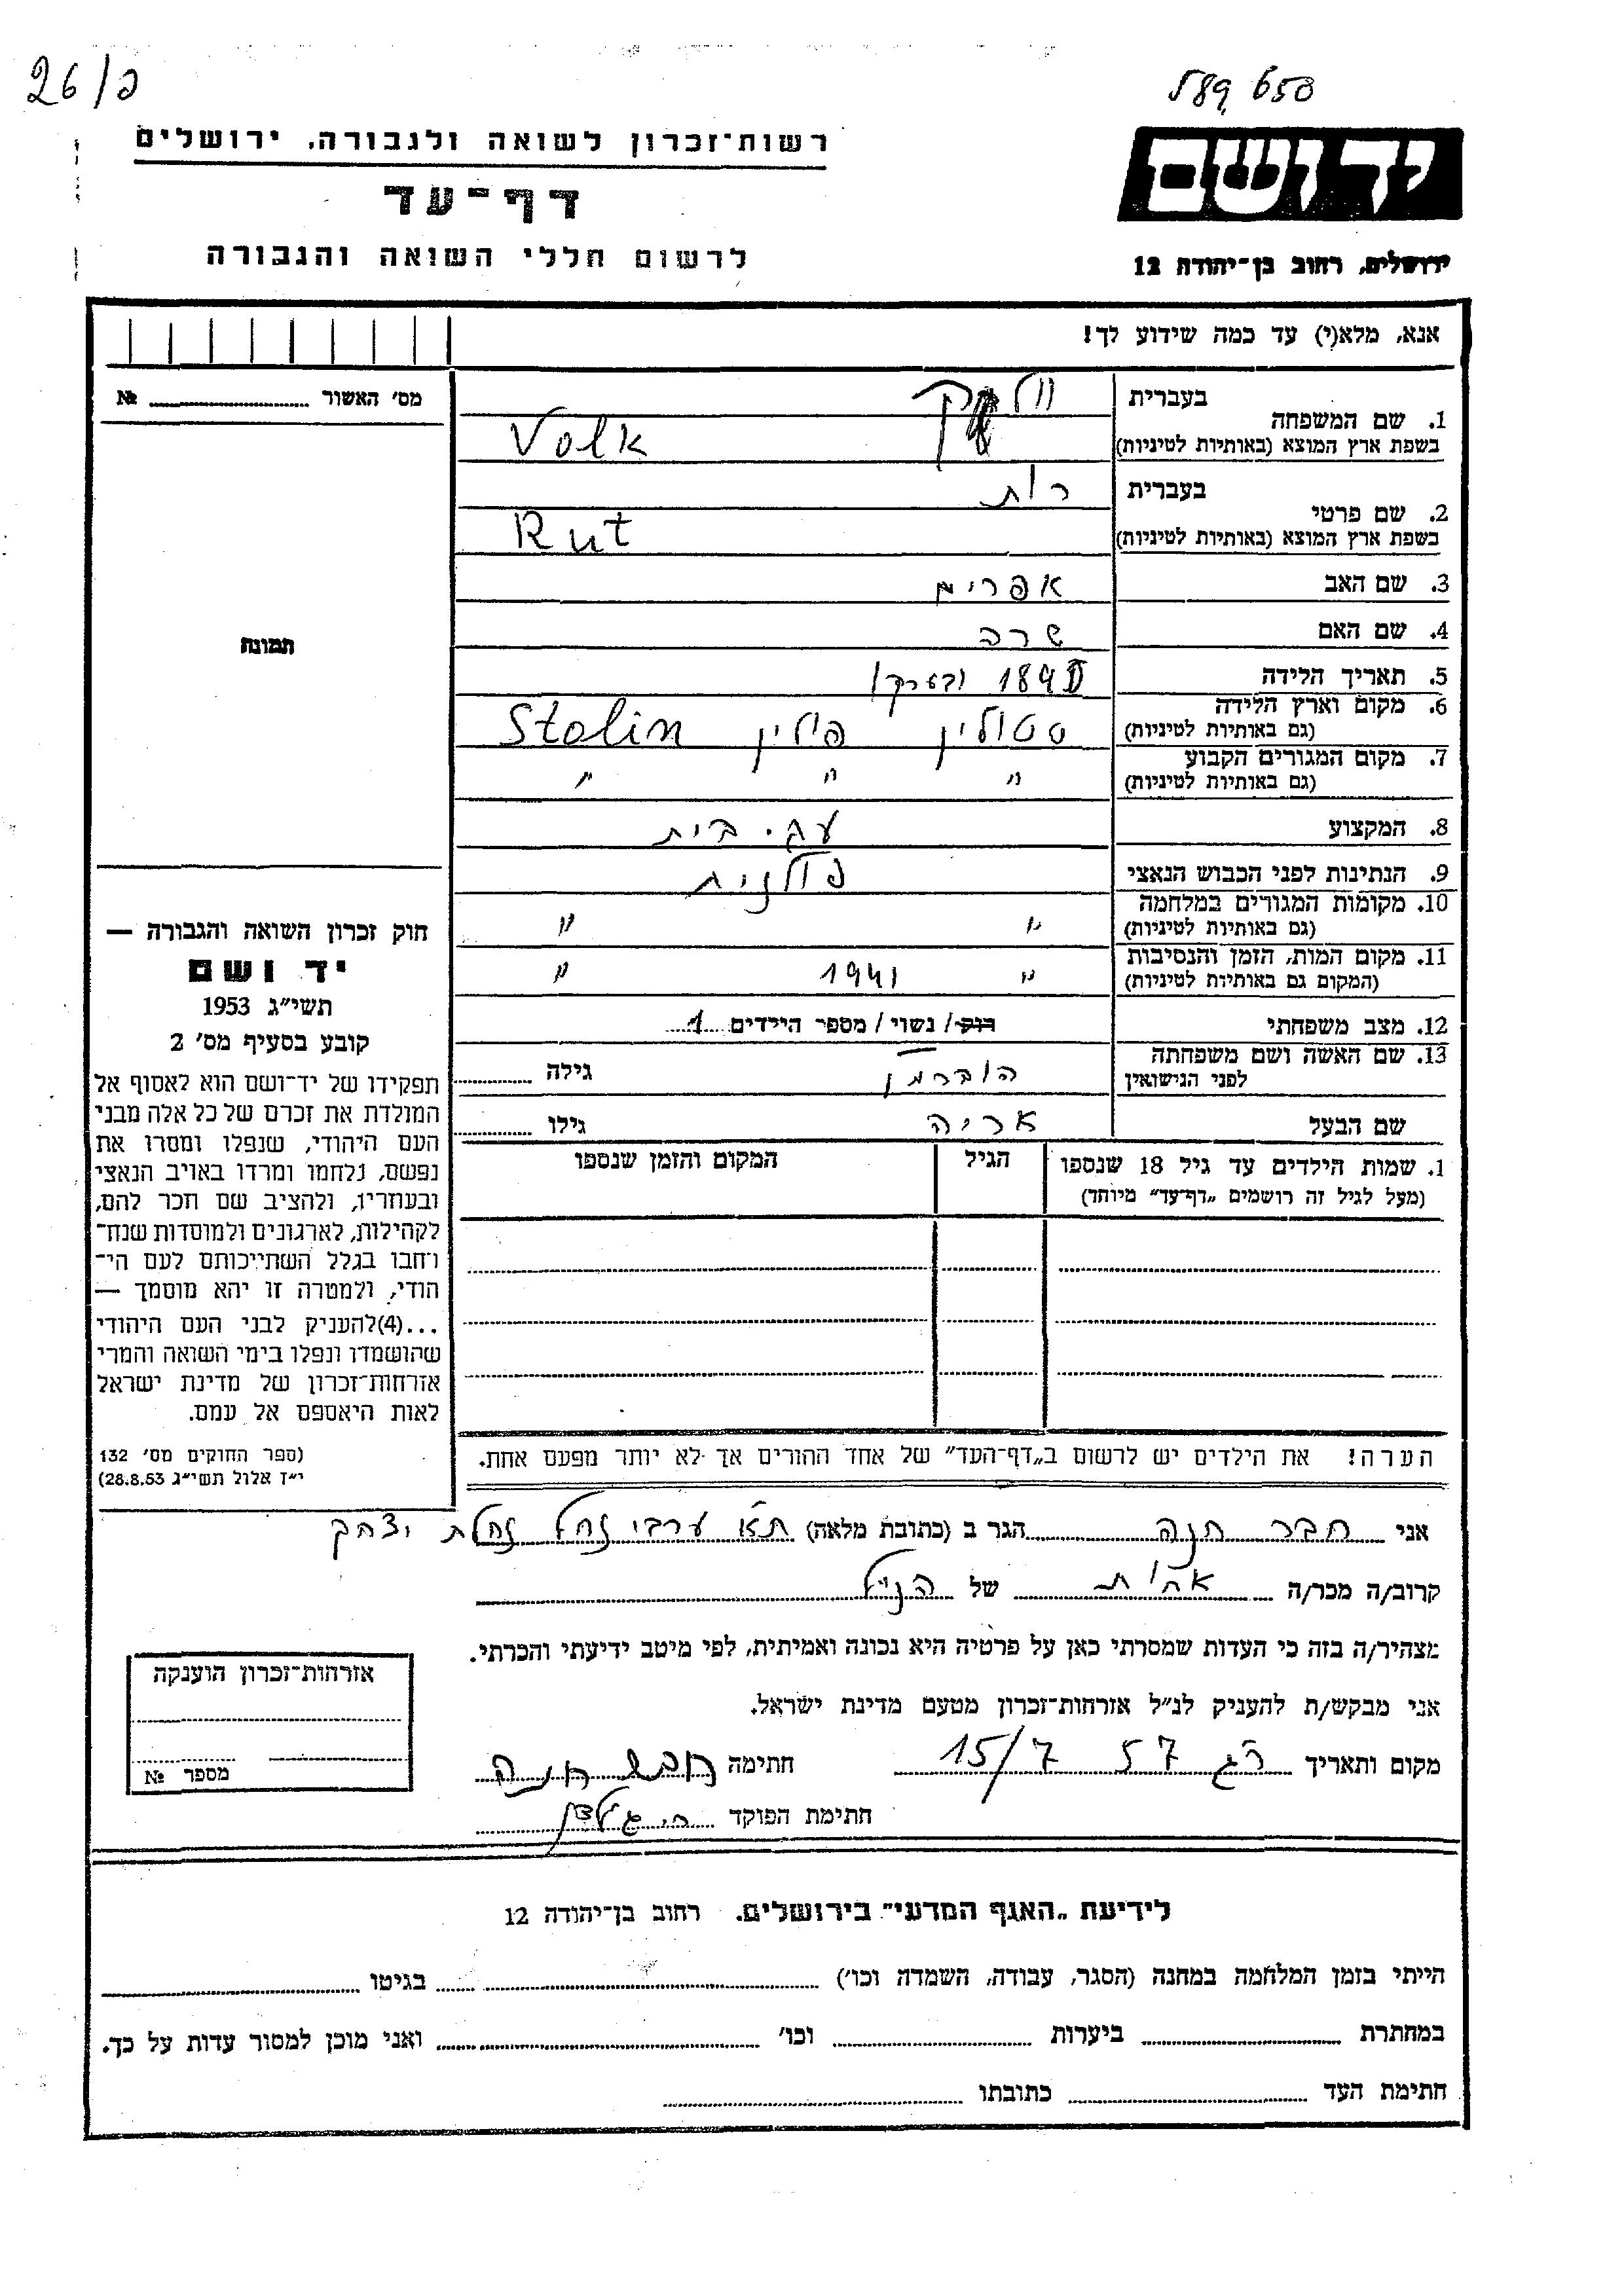 26/ס
589 650
רשות־זכרון לשואה ולגבורה, ירושלים
ידושם
דף־עד
לרשום חללי השואה והגבורה
ירושלים, רחוב בן־יהודה 12
אנא, מלא(י) עד כמה שידוע לך!
מס׳ האשור № 
תמונה
1. שם המשפחה
בעברית
בשפת ארץ המוצא (באותיות לטיניות) Volk
2. שם פרטי
בעברית רות
בשפת ארץ המוצא (באותיות לטיניות) Rut
3. שם האב אפרים
4. שם האם שרה
5. תאריך הלידה
6. מקום וארץ הלידה
(גם באותיות לטיניות) סטולין פולין Stolin
7. מקום המגורים הקבוע
(גם באותיות לטיניות) " " "
8. המקצוע עק. בית
9. הנתינות לפני הכבוש הנאצי פולנית
10. מקומות המגורים במלחמה
(גם באותיות לטיניות) " "
11. מקום המות, הזמן והנסיבות
(המקום גם באותיות לטיניות) " 1941 "
12. מצב משפחתי רוק/ נשוי/ מספר הילדים 1
13. שם האשה ושם משפחתה
לפני הנישואין הוברמן גילה
שם הבעל אריה גילו
1. שמות הילדים עד גיל 18 שנספו
(מעל לגיל זה רושמים „דף־עד” מיוחד)
הגיל
המקום והזמן שנספו
הערה! את הילדים יש לרשום ב„דף־העד” של אחד ההורים אך לא יותר מפעם אחת.
חוק זכרון השואה והגבורה —
יד ושם
תשי״ג 1953
קובע בסעיף מס׳ 2
תפקידו של יד־ושם הוא לאסוף אל
המולדת את זכרם של כל אלה מבני
העם היהודי, שנפלו ומסרו את
נפשם, נלחמו ומרדו באויב הנאצי
ובעוזריו, ולהציב שם וזכר להם,
לקהילות, לארגונים ולמוסדות שנח־
רחבו בגלל השתייכותם לעם הי־
הודי, ולמטרה זו יהא מוסמך —
...(4)להעניק לבני העם היהודי
שהושמדו ונפלו בימי השואה והמרי
אזרחות־זכרון של מדינת ישראל
לאות היאספם אל עמם.
(ספר החוקים מס׳ 132
י״ז אלול תשי״ג 28.8.53)
אני חבר חנה הגר ב (כתובת מלאה) תא ערבי נחל נחלת יצחק
קרוב/ה מכר/ה אחות של הנ״ל
מצהיר/ה בזה כי העדות שמסרתי כאן על פרטיה היא נכונה ואמיתית, לפי מיטב ידיעתי והכרתי.
אני מבקש/ת להעניק לנ״ל אזרחות־זכרון מטעם מדינת ישראל.
מקום ותאריך רג 57 15/7 חתימה חבר חנה
חתימת הפוקד
אזרחות־זכרון הוענקה
מספר №
לידיעת „האגף המדעי” בירושלים. רחוב בן־יהודה 12
הייתי בזמן המלחמה במחנה (הסגר, עבודה, השמדה וכו׳) בגיטו
במחתרת ביערות וכו׳ ואני מוכן למסור עדות על כך.
חתימת העד כתובתו